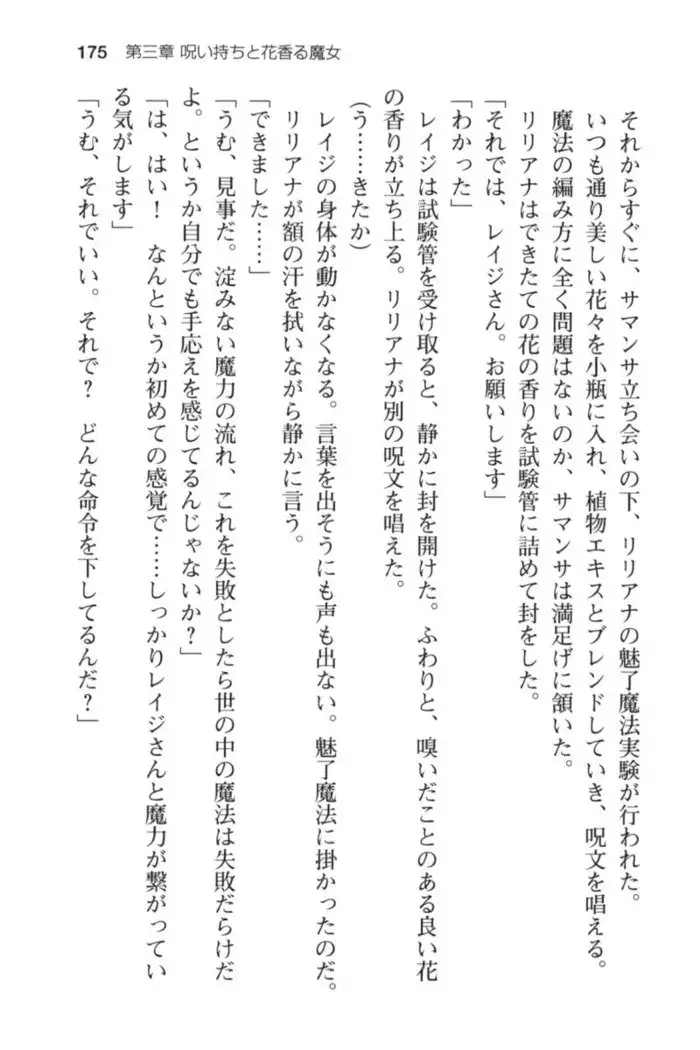 175 第三章 呪い持ちと花香る魔女
それからすぐに、サマンサ立ち会いの下、リリアナの魅了魔法実験が行われた。
いつも通り美しい花々を小瓶に入れ、植物エキスとブレンドしていき、呪文を唱える。
魔法の編み方に全く問題はないのか、サマンサは満足げに頷いた。
リリアナはできたての花の香りを試験管に詰めて封をした。
「それでは、レイジさん。お願いします」
「わかった」
レイジは試験管を受け取ると、静かに封を開けた。ふわりと、嗅いだことのある良い花
の香りが立ち上る。リリアナが別の呪文を唱えた。
(う……きたか)
レイジの身体が動かなくなる。言葉を出そうにも声も出ない。魅了魔法に掛かったのだ。
リリアナが額の汗を拭いながら静かに言う。
「できました……」
「うむ、見事だ。淀みない魔力の流れ、これを失敗としたら世の中の魔法は失敗だらけだ
よ。というか自分でも手応えを感じてるんじゃないか?」
「は、はい! なんというか初めての感覚で……しっかりレイジさんと魔力が繋がってい
る気がします」
「うむ、それでいい。それで? どんな命令を下してるんだ?」